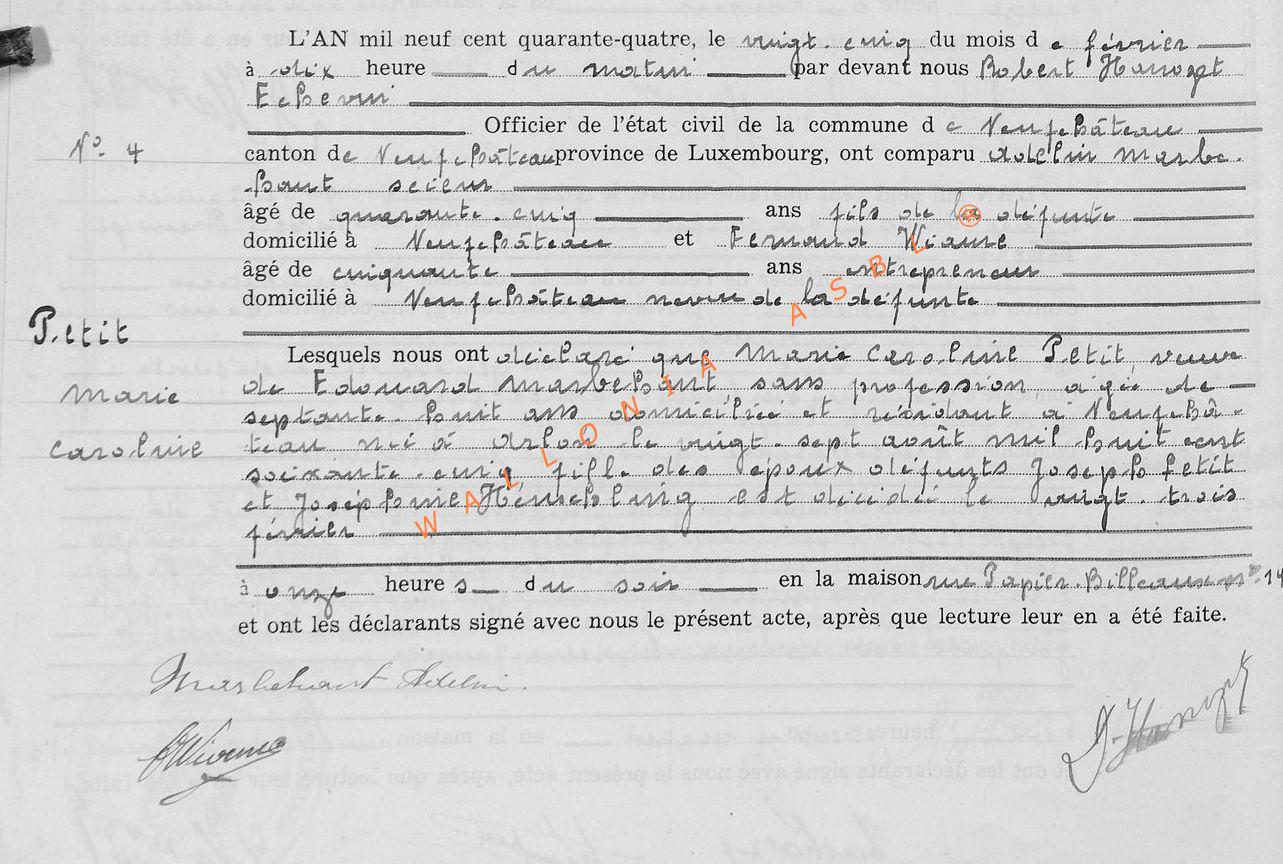 L'AN mil neuf cent quarante-quatre, le vingt. cinq du mois de février
à dix heure du matin par devant nous Robert
Echevin
Officier de l'état civil de la commune de Neufchâteau
N° 4
canton de Neufchâteau province de Luxembourg, ont comparu Adelin Marbe-
-hant scieur
âgé de quarante-cinq ans fils de la défunte
domicilié à Neufchâteau et Fernand Wiame
âgé de cinquante ans entrepreneur
domicilié à Neufchâteau neveu de la défunte
Petit
Marie
Caroline
Lesquels nous ont déclaré que Marie Caroline Petit, veuve
de Edouard Marbehant sans profession agée de
septante-huit ans domiciliée et résidant à Neufchâ-
teau née à Arlon le vingt-sept août mil huit cent
soixante-cinq, fille des époux défunts Joseph Petit
et Joséphine est décédée le vingt-trois
février
à onze heures du soir en la maison rue Papier n° 14
et ont les déclarants signé avec nous le présent acte, après que lecture leur en a été faite.
Marbehant Adelin.
Wiame
WALLONIA ASBL